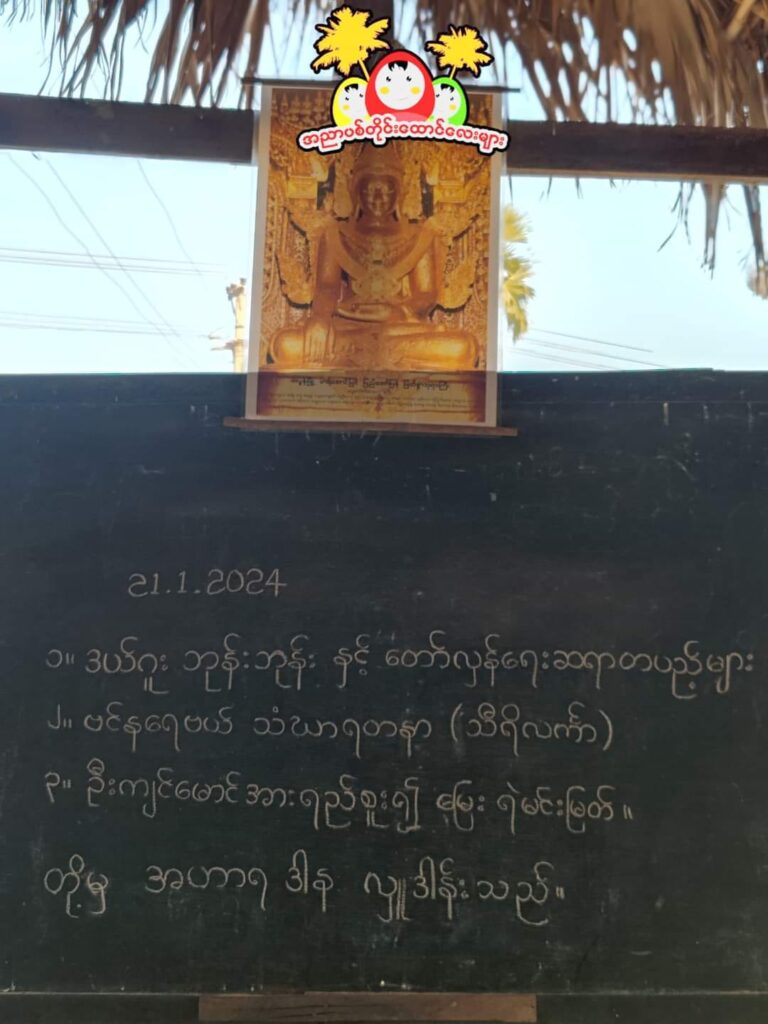 အညာပစ်တိုင်းထောင်လေးများ
21.1.2024
၁။ ဒယ်ဂူး ဘုန်းဘုန်း နှင့် တော်လှန်ရေးဆရာတပည့်များ
၂။ ဗင်နရေဗယ် သံဃာရတနာ (သီရိလင်္ကာ)
၃။ ဦးကျင်မောင်အားရည်စူး၍ မြေး ရဲမင်းမြတ်။
တို့မှ အဟာရ ဒါန လှူဒါန်းသည်။